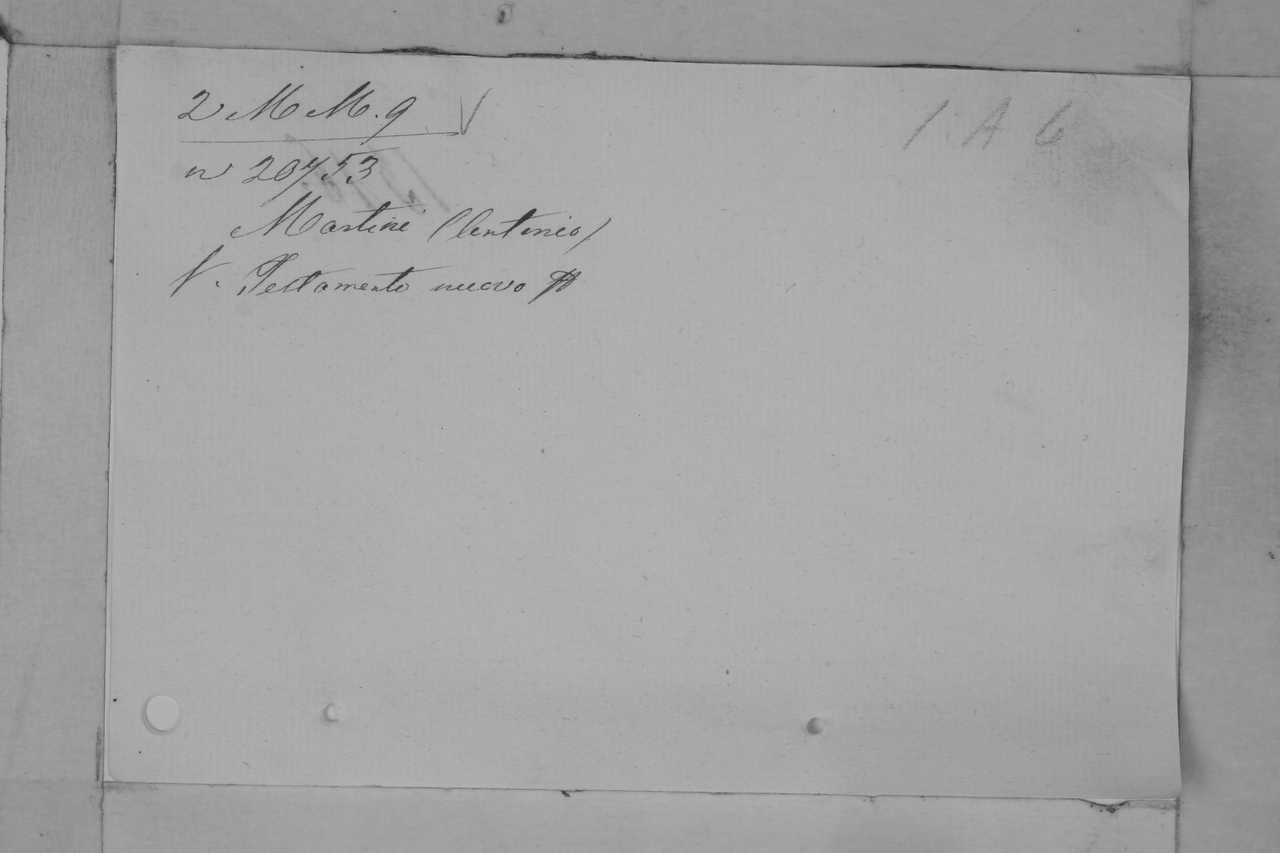 2 M M. 9
1 A 6
n 20753
Martini (Antonio)
V. Testamento nuovo